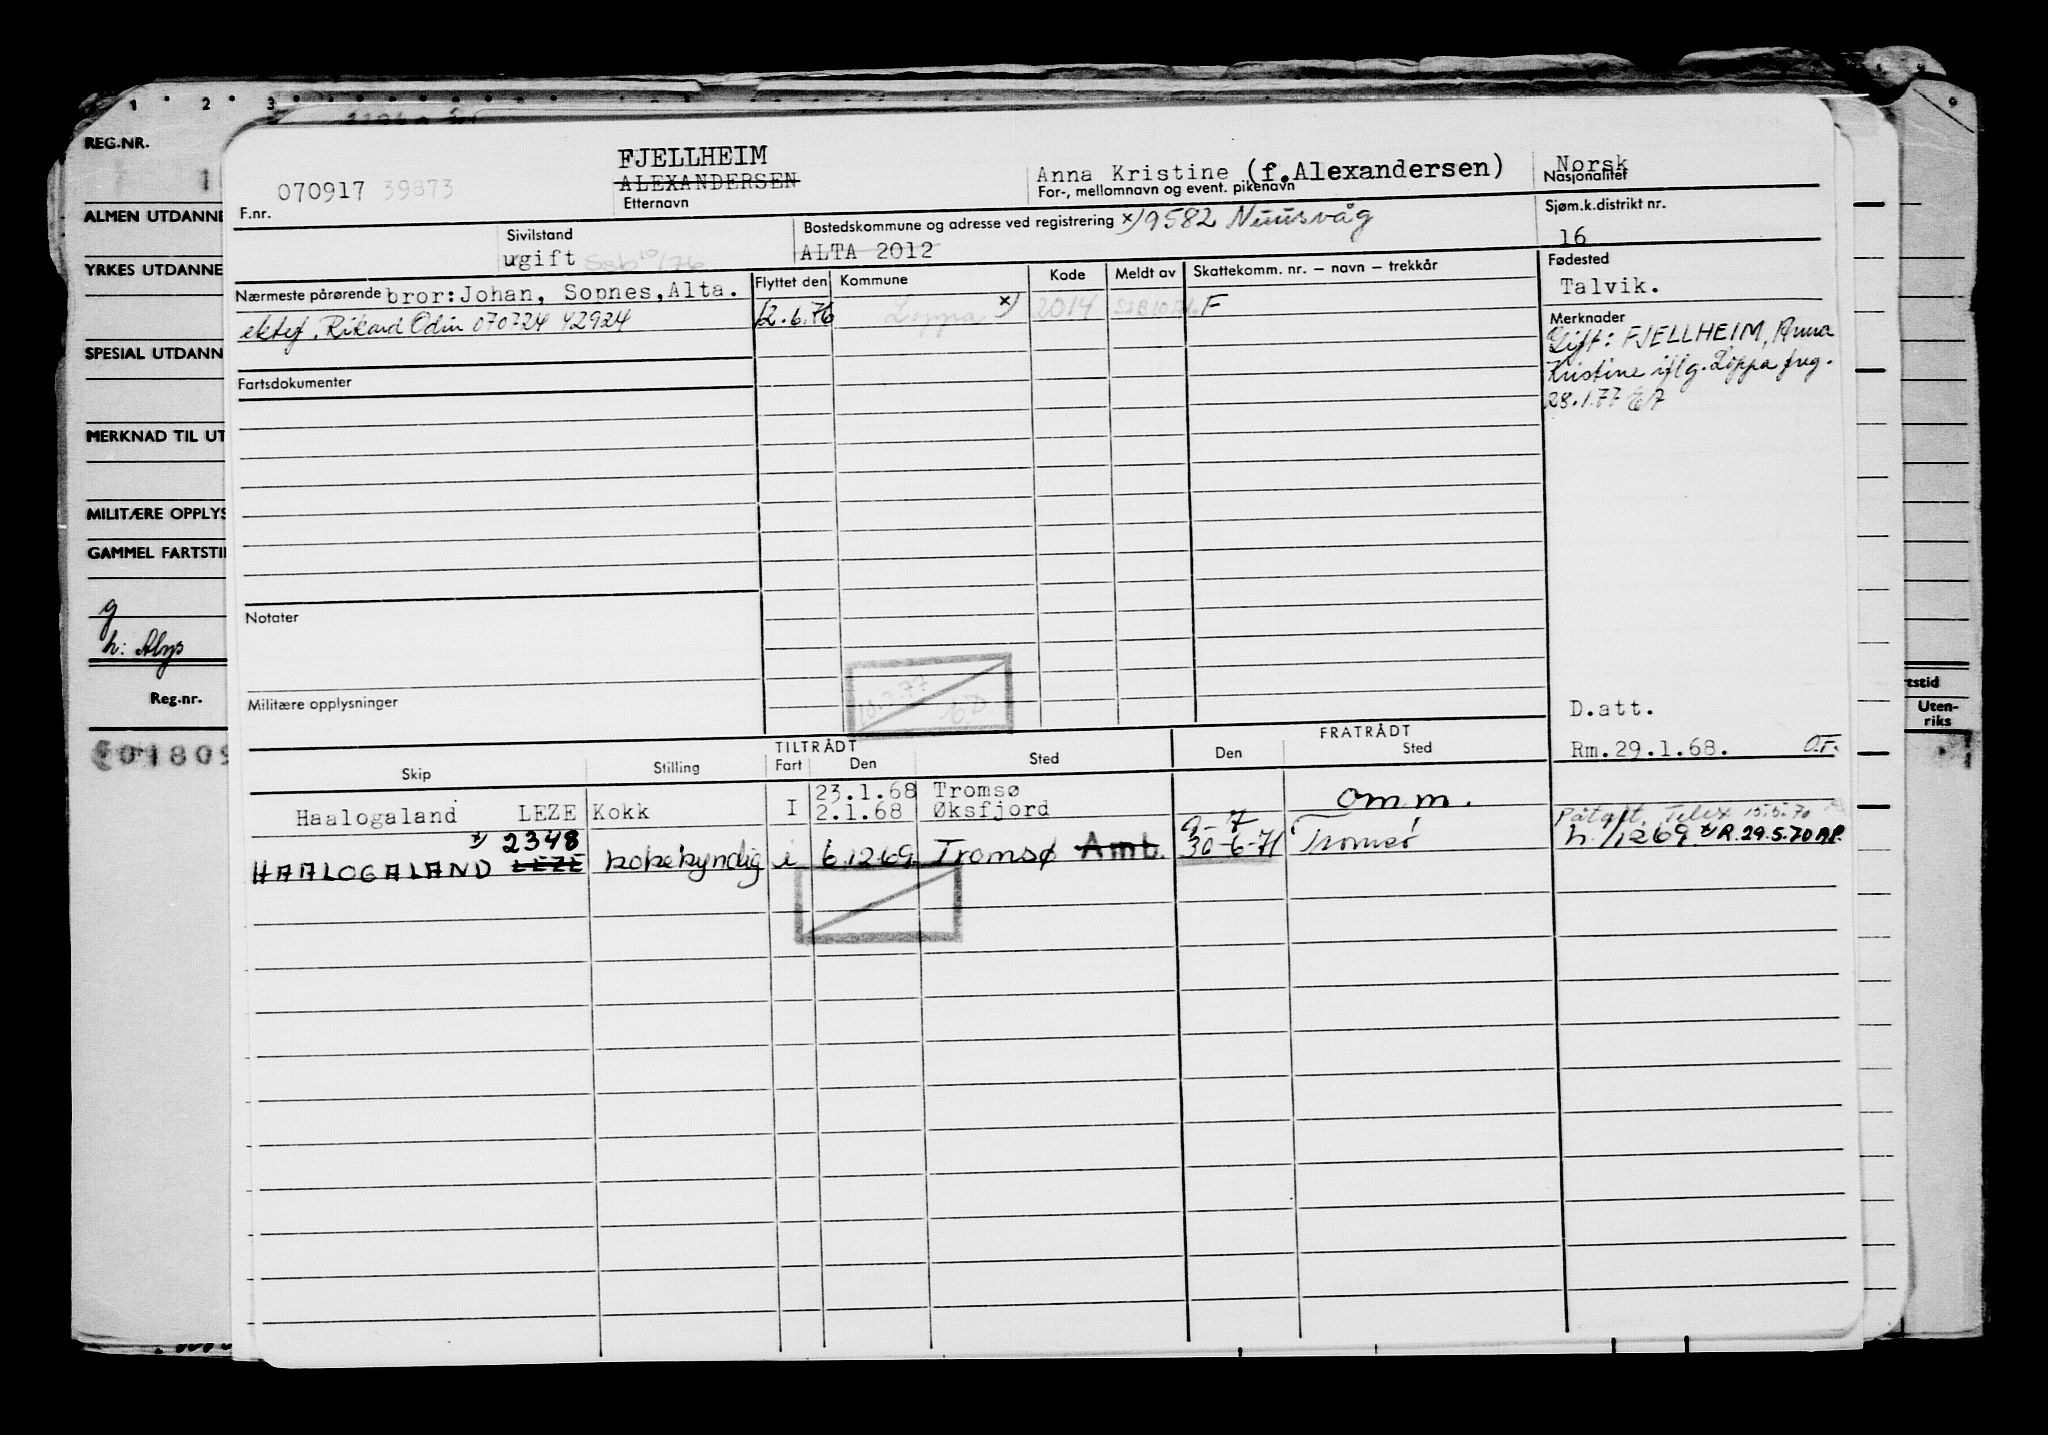 1 2 3
REG.NR.
ALMEN UTDANNE
YRKES UTDANNE
SPESIAL UTDANN
MERKNAD TIL UT
MILITÆRE OPPLYS
GAMMEL FARTSTI
g
h: Alys
Reg.nr.
rtstid
Uten-
riks
070917 39873
F.nr.
FJELLHEIM
ALEXANDERSEN
Etternavn
Anna Kristine (f.Alexandersen)
For-, mellomnavn og event. pikenavn
Norsk
Nasjonalitet
Sivilstand
ugift Ssb 10/76
Bostedskommune og adresse ved registrering x) 9582 Nuusvåg
ALTA 2012
Sjøm.k.distrikt nr.
16
Nærmeste pårørende bror: Johan, Sopnes, Alta.
ektef. Rikard Odin 070724 42924
Flyttet den Kommune Kode Meldt av Skattekomm. nr. – navn – trekkår
12.6.76 Loppa x) 2014 F
Fødested
Talvik.
Merknader
Gift: FJELLHEIM, Anna
Kristine iflg. Loppa freg.
28.1.77
Fartsdokumenter
Notater
Militære opplysninger
10.2.77
D.att.
Rm.29.1.68.
TILTRÅDT FRATRÅDT
Skip Stilling Fart Den Sted Den Sted
Haalogaland LEZE Kokk I 23.1.68 Tromsø omm.
2.1.68 Øksfjord
Påtgft. Telex 15.5.70
x) 2348 9-7
HAALOGALAND LEZE kokekyndig i 6.12.69 Tromsø Amb. 30-6-71 Tromsø h. 1269 x) R.29.5.70 AP.